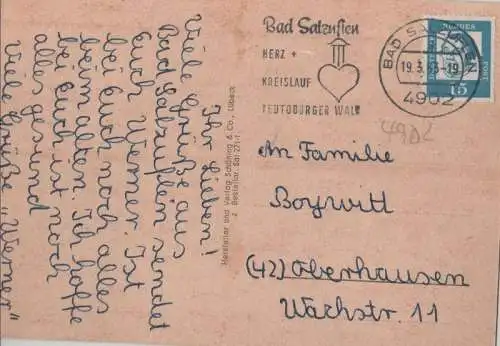 Ihr Lieben!
Viele Grüße aus
Bad Salzuflen sendet
Euch Werner. Ist
bei Euch noch alles
beim alten. Ich hoffe
bei Euch ist noch
alles gesund
Viele Grüße „Werner"
Hersteller und Verlag Schöning & Co., Lübeck
Bestellnr. Sal 27
Bad Salzuflen
HERZ +
KREISLAUF
TEUTOBURGER WALD
BAD SALZUFLEN
19.3.63-19
4902
15
4902
An Familie
Boywitt
(42) Oberhausen
Wachstr. 11